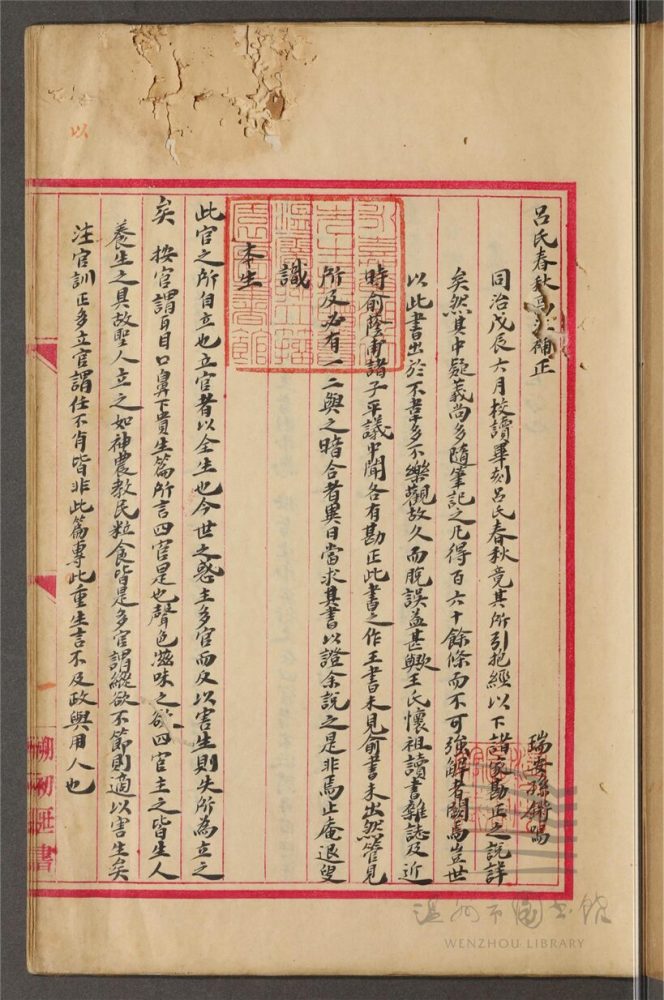 呂氏春秋高注補正
瑞安孫鏘鳴
同治戊辰六月校讀畢刻呂氏春秋竟其所引抱經以下諸家勘正之說詳
矣然其中疑義尚多隨筆記之凡得百六十餘條而不可強解者闕焉豈世
以此書出於不韋多不樂觀故久而脫誤益甚歟王氏懷祖讀書雜誌及近
時俞蔭甫諸子平議中聞各有勘正此書之作王書未見俞書未出然管見
所及必有一二與之暗合者異日當求其書以證余說之是非焉止庵退叟
識
本生
此官之所自立也立官者以全生也今世之惑主多官而反以害生則失所為立之
矣 按官謂耳目口鼻下貴生篇所言四官是也聲色滋味之欲四官主之皆生人
養生之具故聖人立之如神農教民粒食皆是多官謂縱欲不節則適以害生矣
注官訓正多立官謂任不肖皆非此篇專此重生言不及政與用人也
以
溫州市圖書館
WENZHOU LIBRARY